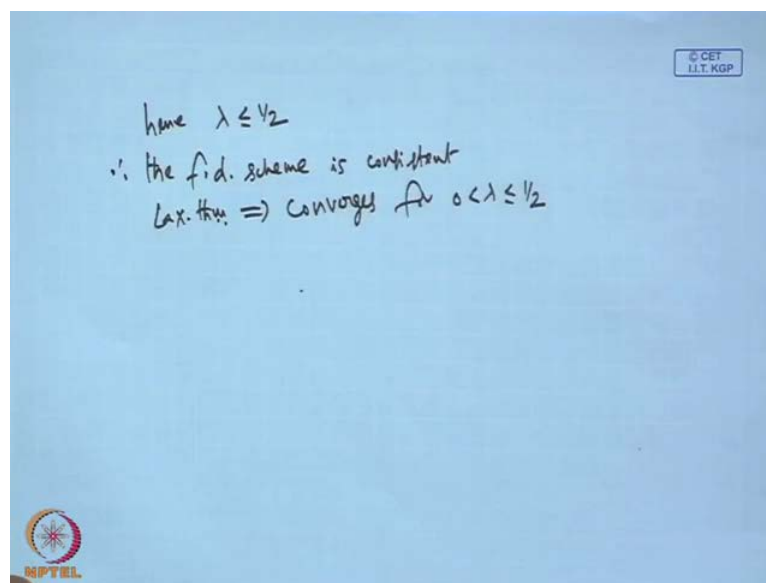 © CET
I.I.T. KGP
hence λ ≤ 1/2
∴ the f.d. scheme is consistent
Lax. thm. ⇒ converges for 0 < λ ≤ 1/2
NPTEL